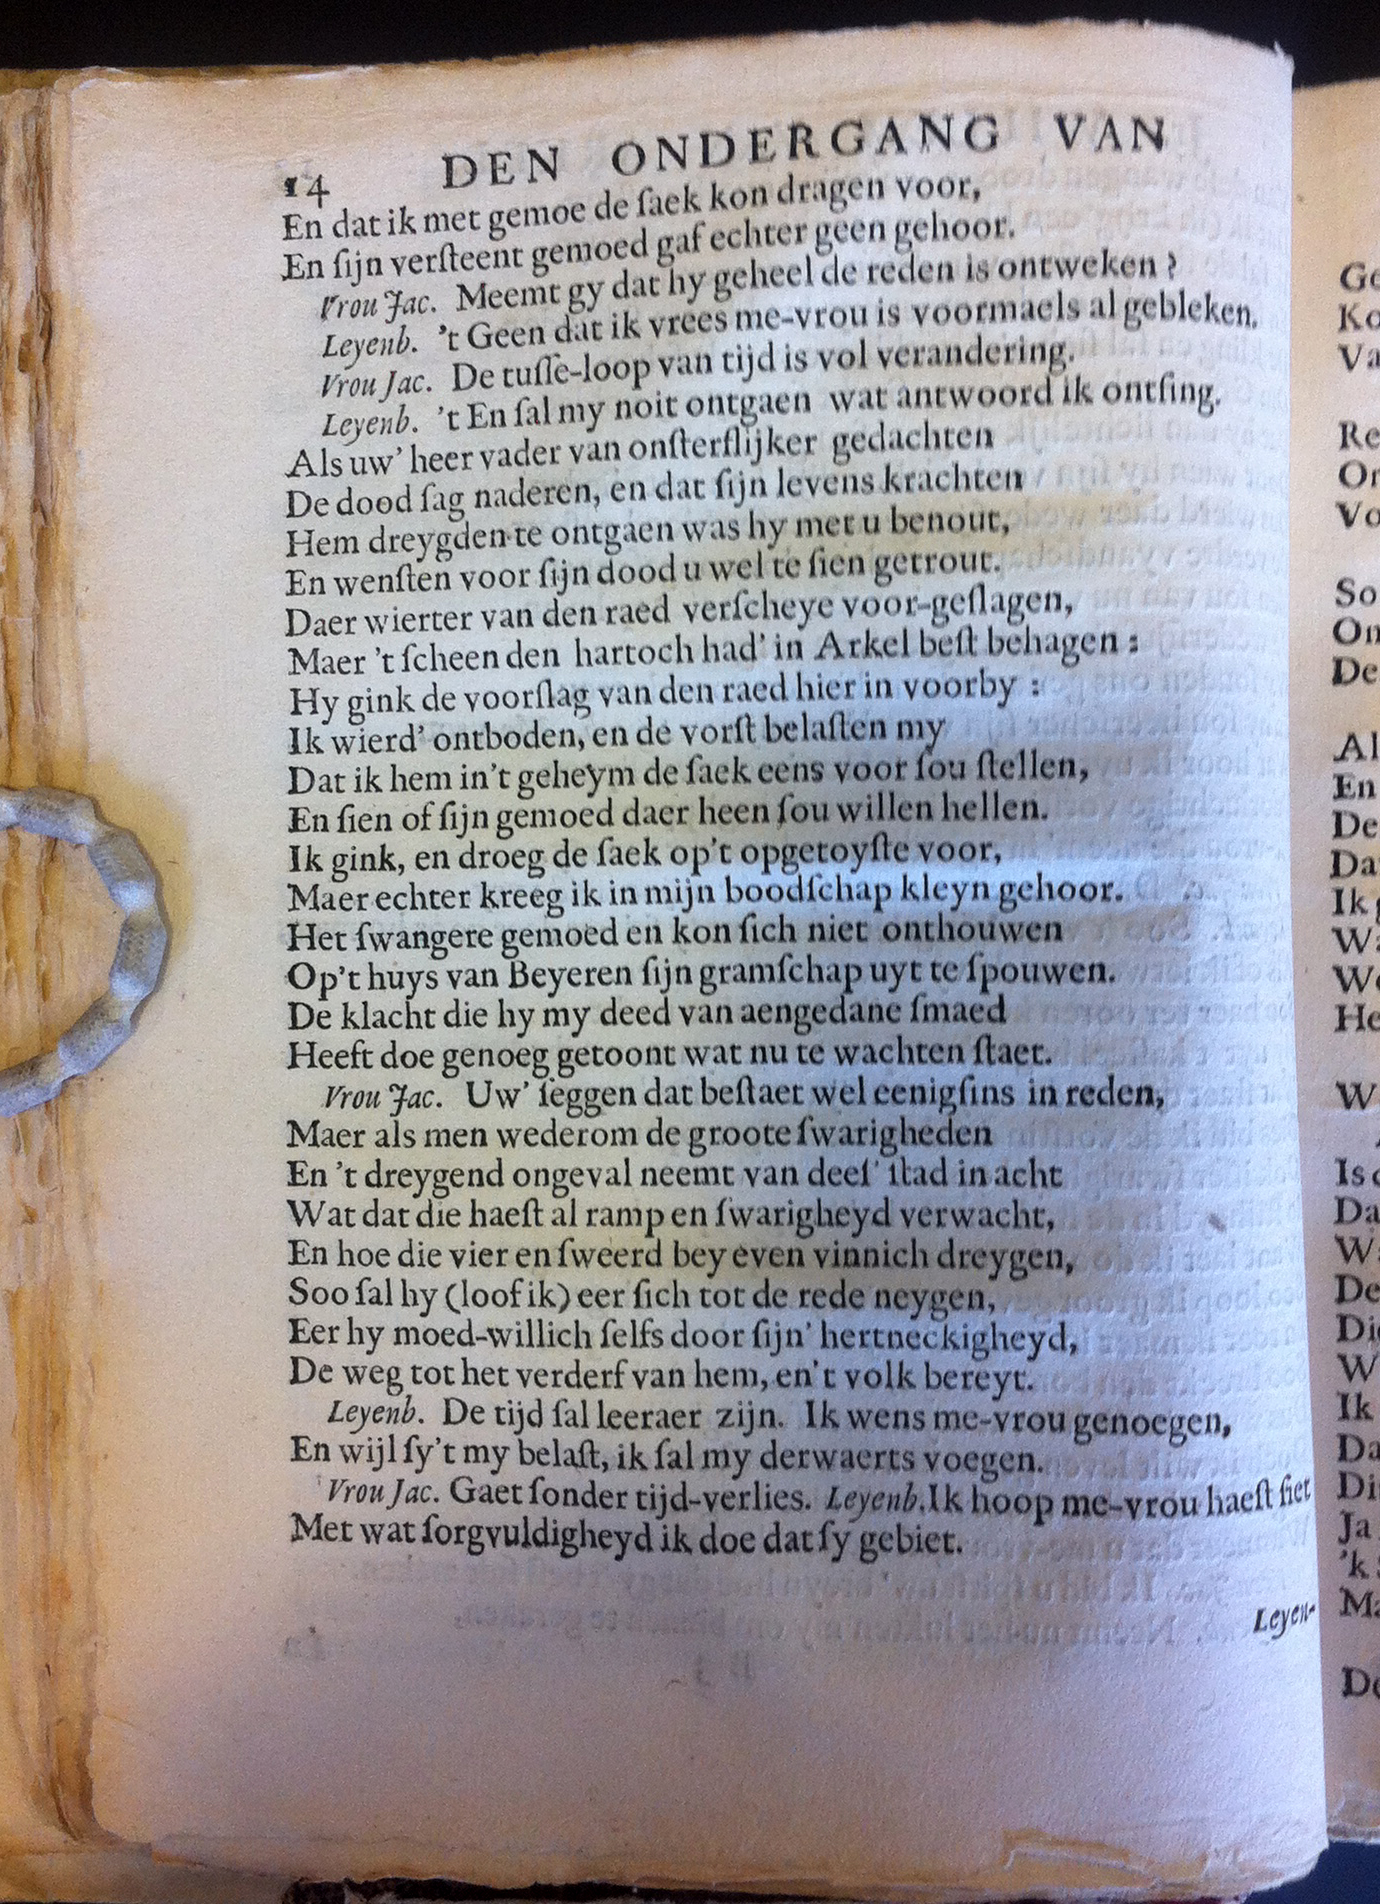 14 DEN ONDERGANG VAN
En dat ik met gemoe de ſaek kon dragen voor,
En ſijn verſteent gemoed gaf echter geen gehoor.
Vrou Jac. Meemt gy dat hy geheel de reden is ontweken?
Leyenb. 't Geen dat ik vrees me-vrou is voormaels al gebleken.
Vrou Jac. De tuſſe-loop van tijd is vol verandering.
Leyenb. 't En ſal my noit ontgaen wat antwoord ik ontfing.
Als uw' heer vader van onſterflijker gedachten
De dood ſag naderen, en dat ſijn levens krachten
Hem dreygden te ontgaen was hy met u benout,
En wenſten voor ſijn dood u wel te ſien getrout.
Daer wierter van den raed verſcheye voor-geſlagen,
Maer 't ſcheen den hartoch had' in Arkel beſt behagen:
Hy gink de voorſlag van den raed hier in voorby:
Ik wierd' ontboden, en de vorſt belaſten my
Dat ik hem in't geheym de ſaek eens voor ſou ſtellen,
En ſien of ſijn gemoed daer heen ſou willen hellen.
Ik gink, en droeg de ſaek op't opgetoyſte voor,
Maer echter kreeg ik in mijn boodſchap kleyn gehoor.
Het ſwangere gemoed en kon ſich niet onthouwen
Op't huys van Beyeren ſijn gramſchap uyt te ſpouwen.
De klacht die hy my deed van aengedane ſmaed
Heeft doe genoeg getoont wat nu te wachten ſtaet.
Vrou Jac. Uw' ſeggen dat beſtaet wel eenigſins in reden,
Maer als men wederom de groote ſwarigheden
En 't dreygend ongeval neemt van deeſ' ſtad in acht
Wat dat die haeſt al ramp en ſwarigheyd verwacht,
En hoe die vier en ſweerd bey even vinnich dreygen,
Soo ſal hy (loof ik) eer ſich tot de rede neygen,
Eer hy moed-willich ſelfs door ſijn' hertneckigheyd,
De weg tot het verderf van hem, en't volk bereyt.
Leyenb. De tijd ſal leeraer zijn. Ik wens me-vrou genoegen,
En wijl ſy't my belaſt, ik ſal my derwaerts voegen.
Vrou Jac. Gaet ſonder tijd-verlies. Leyenb. Ik hoop me-vrou haeſt ſiet
Met wat ſorgvuldigheyd ik doe dat ſy gebiet.
Leyen-
Ge
Ko
Va
Re
On
Vo
So
On
De
Al
En
De
Da
Ik
Wa
We
He
W
Is
Da
Wa
De
Die
W
Ik
Da
Di
Ja
'k
Ma
De